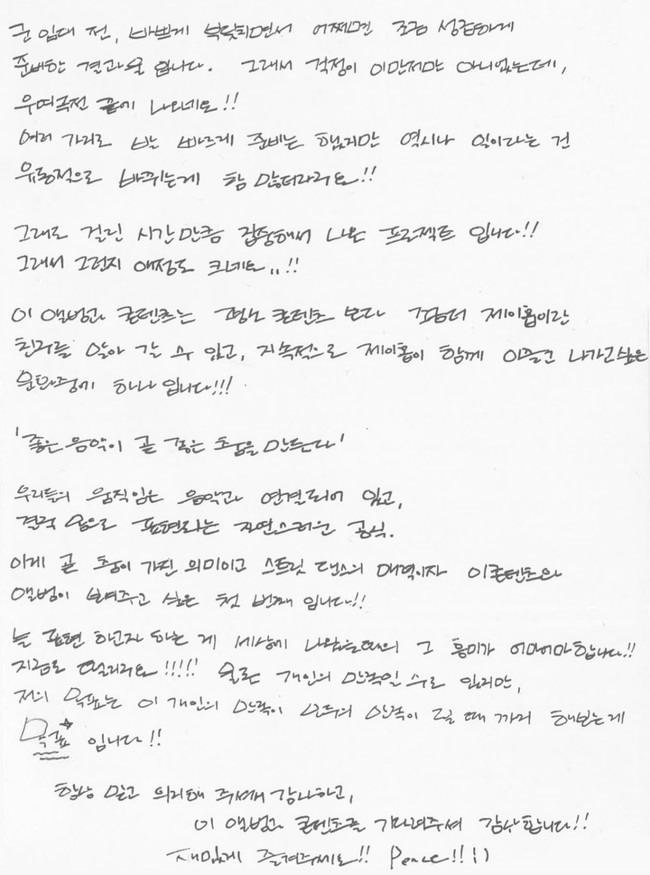 군 입대 전, 바쁘게 부딪히면서 어쩌면 조금 성급하게
준비한 결과물 입니다. 그래서 걱정이 이만저만 아니었는데,
우여곡절 끝에 나오네요!!
여러 가지로 발 빠르게 준비는 했지만 역시나 일이라는 건
유동적으로 바뀌는게 참 많더라고요!!
그래도 걸린 시간만큼 집중해서 나온 프로젝트 입니다!!
그래서 그런지 애정도 크네요..!!
이 앨범과 콘텐츠는 그 어느 콘텐츠 보다 좀 더 제이홉이란
친구를 알아 갈 수 있고, 지속적으로 제이홉이 함께 이끌고 나가고 싶은
문화중에 하나 입니다!!!
'좋은 음악이 곧 좋은 춤을 만든다'
우리들의 움직임은 음악과 연결되어 있고,
결국 몸으로 표현하는 자연스러운 공식.
이게 곧 춤이 가진 의미이고 스트릿 댄스의 매력이자 이 콘텐츠와
앨범이 보여주고 싶은 첫 번째 입니다!!
늘 표현 하고자 하는 게 세상에 나왔을때의 그 흥미가 어마어마합니다!!
지금도 떨려요!!!!! 물론 개인의 만족일 수도 있지만,
저의 목표는 이 개인의 만족이 모두의 만족이 될 때 까지 해보는게
목표 입니다!!
항상 믿고 의지해 주셔서 감사하고,
이 앨범과 콘텐츠를 기다려주셔 감사합니다!!
재밌게 즐겨주세요!! Peace!! :)